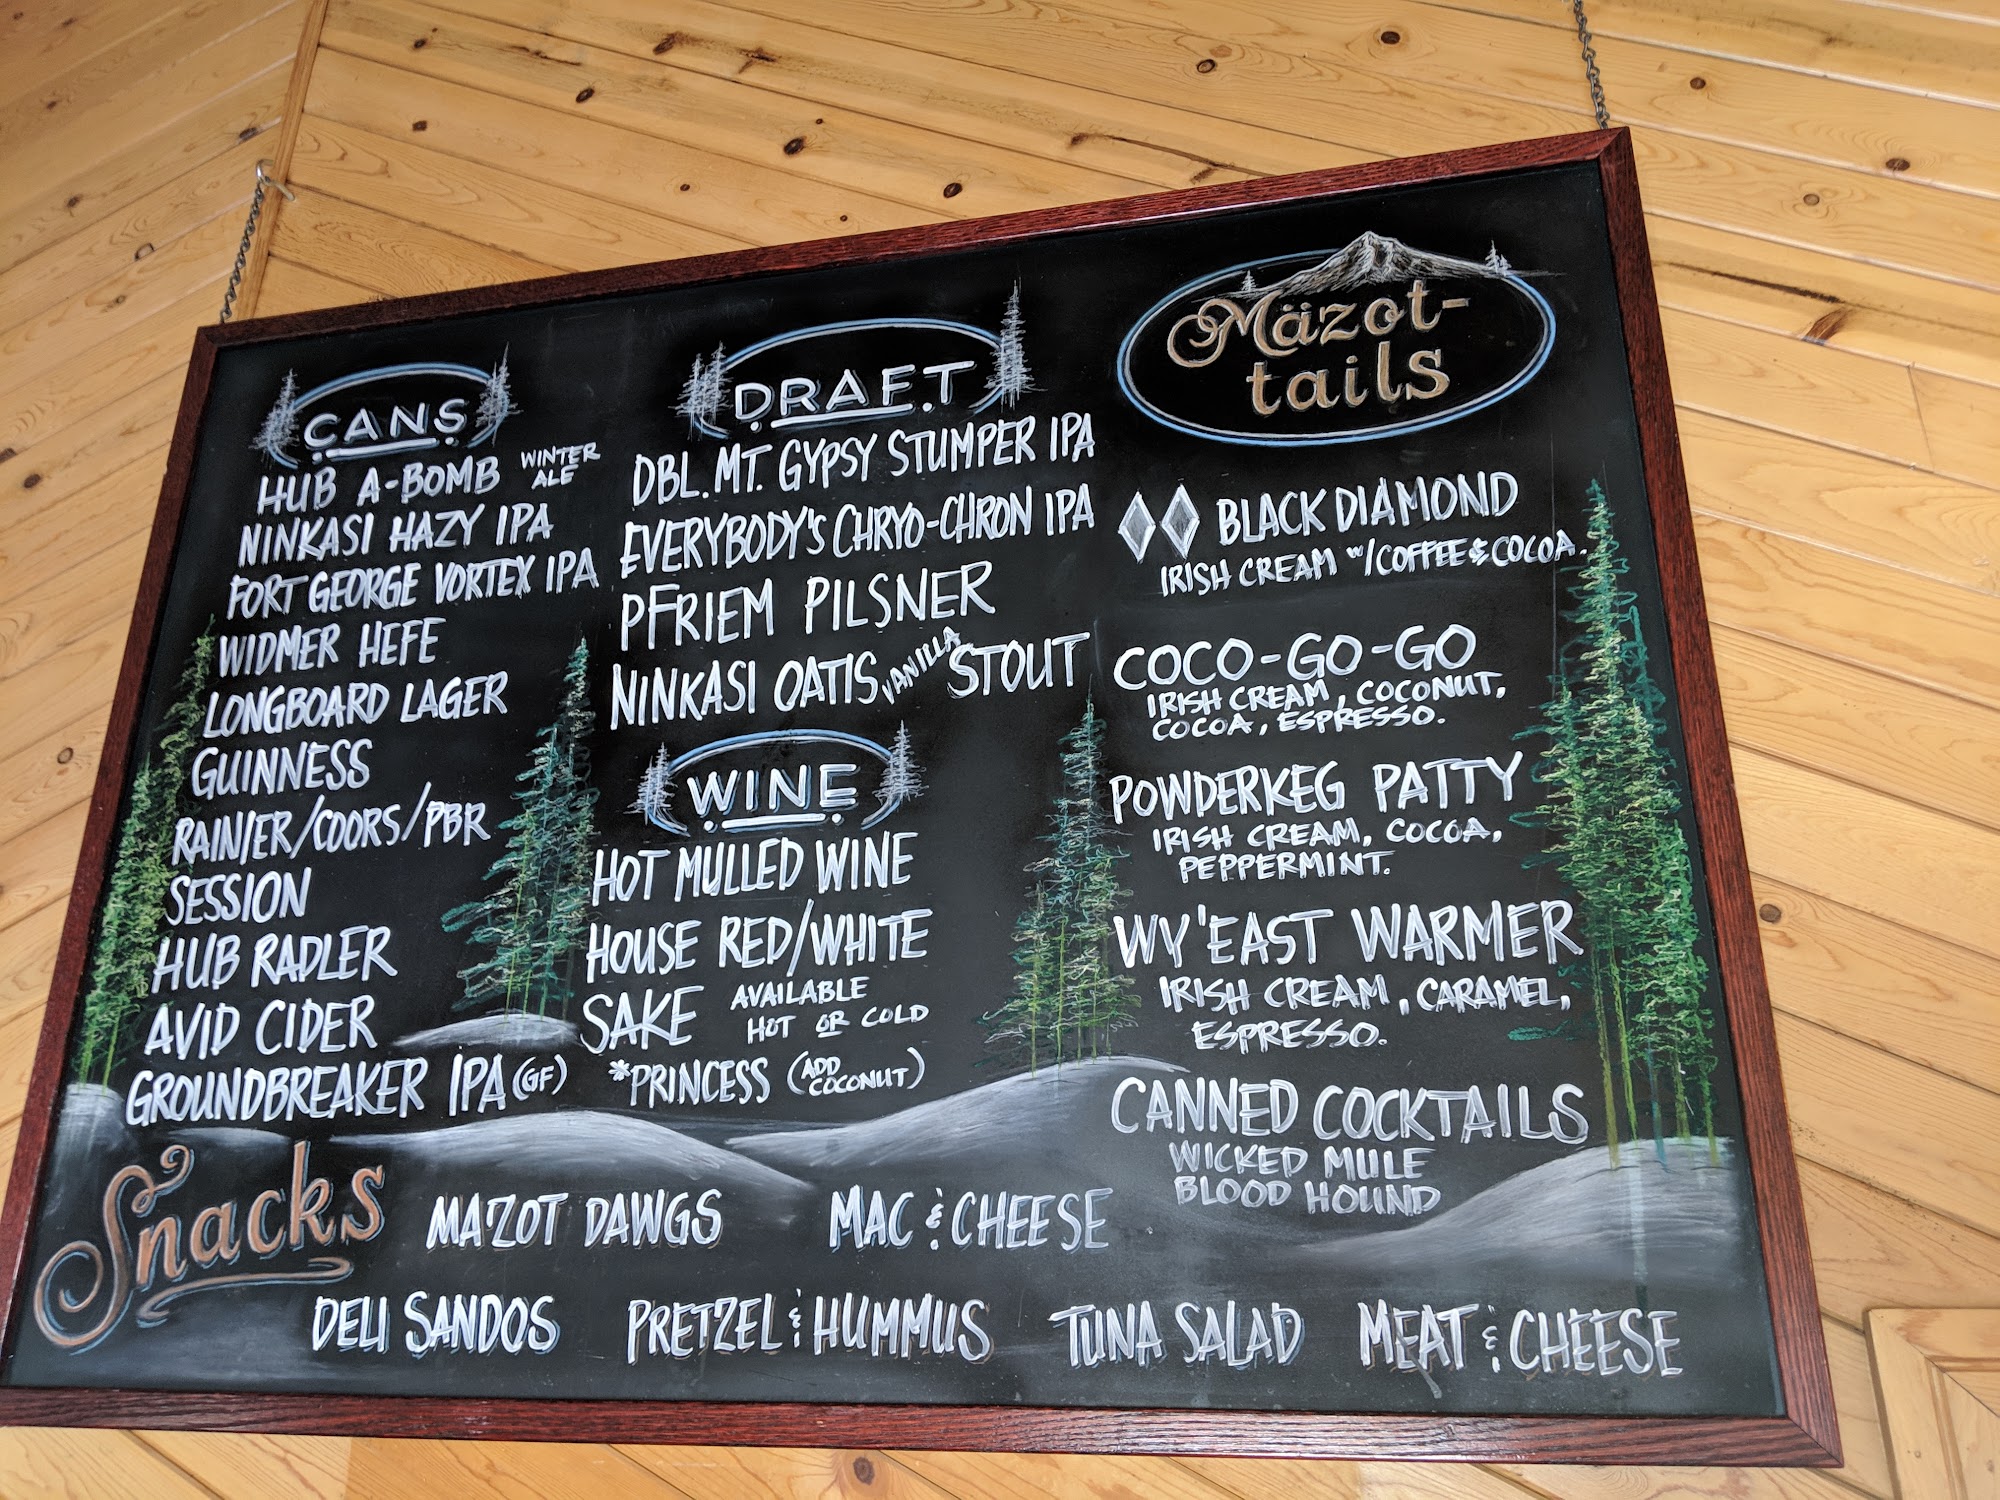 CANS
HUB A-BOMB WINTER ALE
NINKASI HAZY IPA
FORT GEORGE VORTEX IPA
WIDMER HEFE
LONGBOARD LAGER
GUINNESS
RAINIER/COORS/PBR
SESSION
HUB RADLER
AVID CIDER
GROUNDBREAKER IPA (GF)
DRAFT
DBL. MT. GYPSY STUMPER IPA
EVERYBODY'S CHRYO-CHRON IPA
PFRIEM PILSNER
NINKASI OATIS VANILLA STOUT
WINE
HOT MULLED WINE
HOUSE RED/WHITE
SAKE AVAILABLE
HOT OR COLD
*PRINCESS (ADD COCONUT)
Mäzot-
tails
BLACK DIAMOND
IRISH CREAM W/COFFEE & COCOA.
COCO-GO-GO
IRISH CREAM, COCONUT,
COCOA, ESPRESSO.
POWDERKEG PATTY
IRISH CREAM, COCOA,
PEPPERMINT.
WY'EAST WARMER
IRISH CREAM, CARAMEL,
ESPRESSO.
CANNED COCKTAILS
WICKED MULE
BLOOD HOUND
Snacks
MAZOT DAWGS MAC & CHEESE
DELI SANDOS PRETZEL & HUMMUS TUNA SALAD MEAT & CHEESE